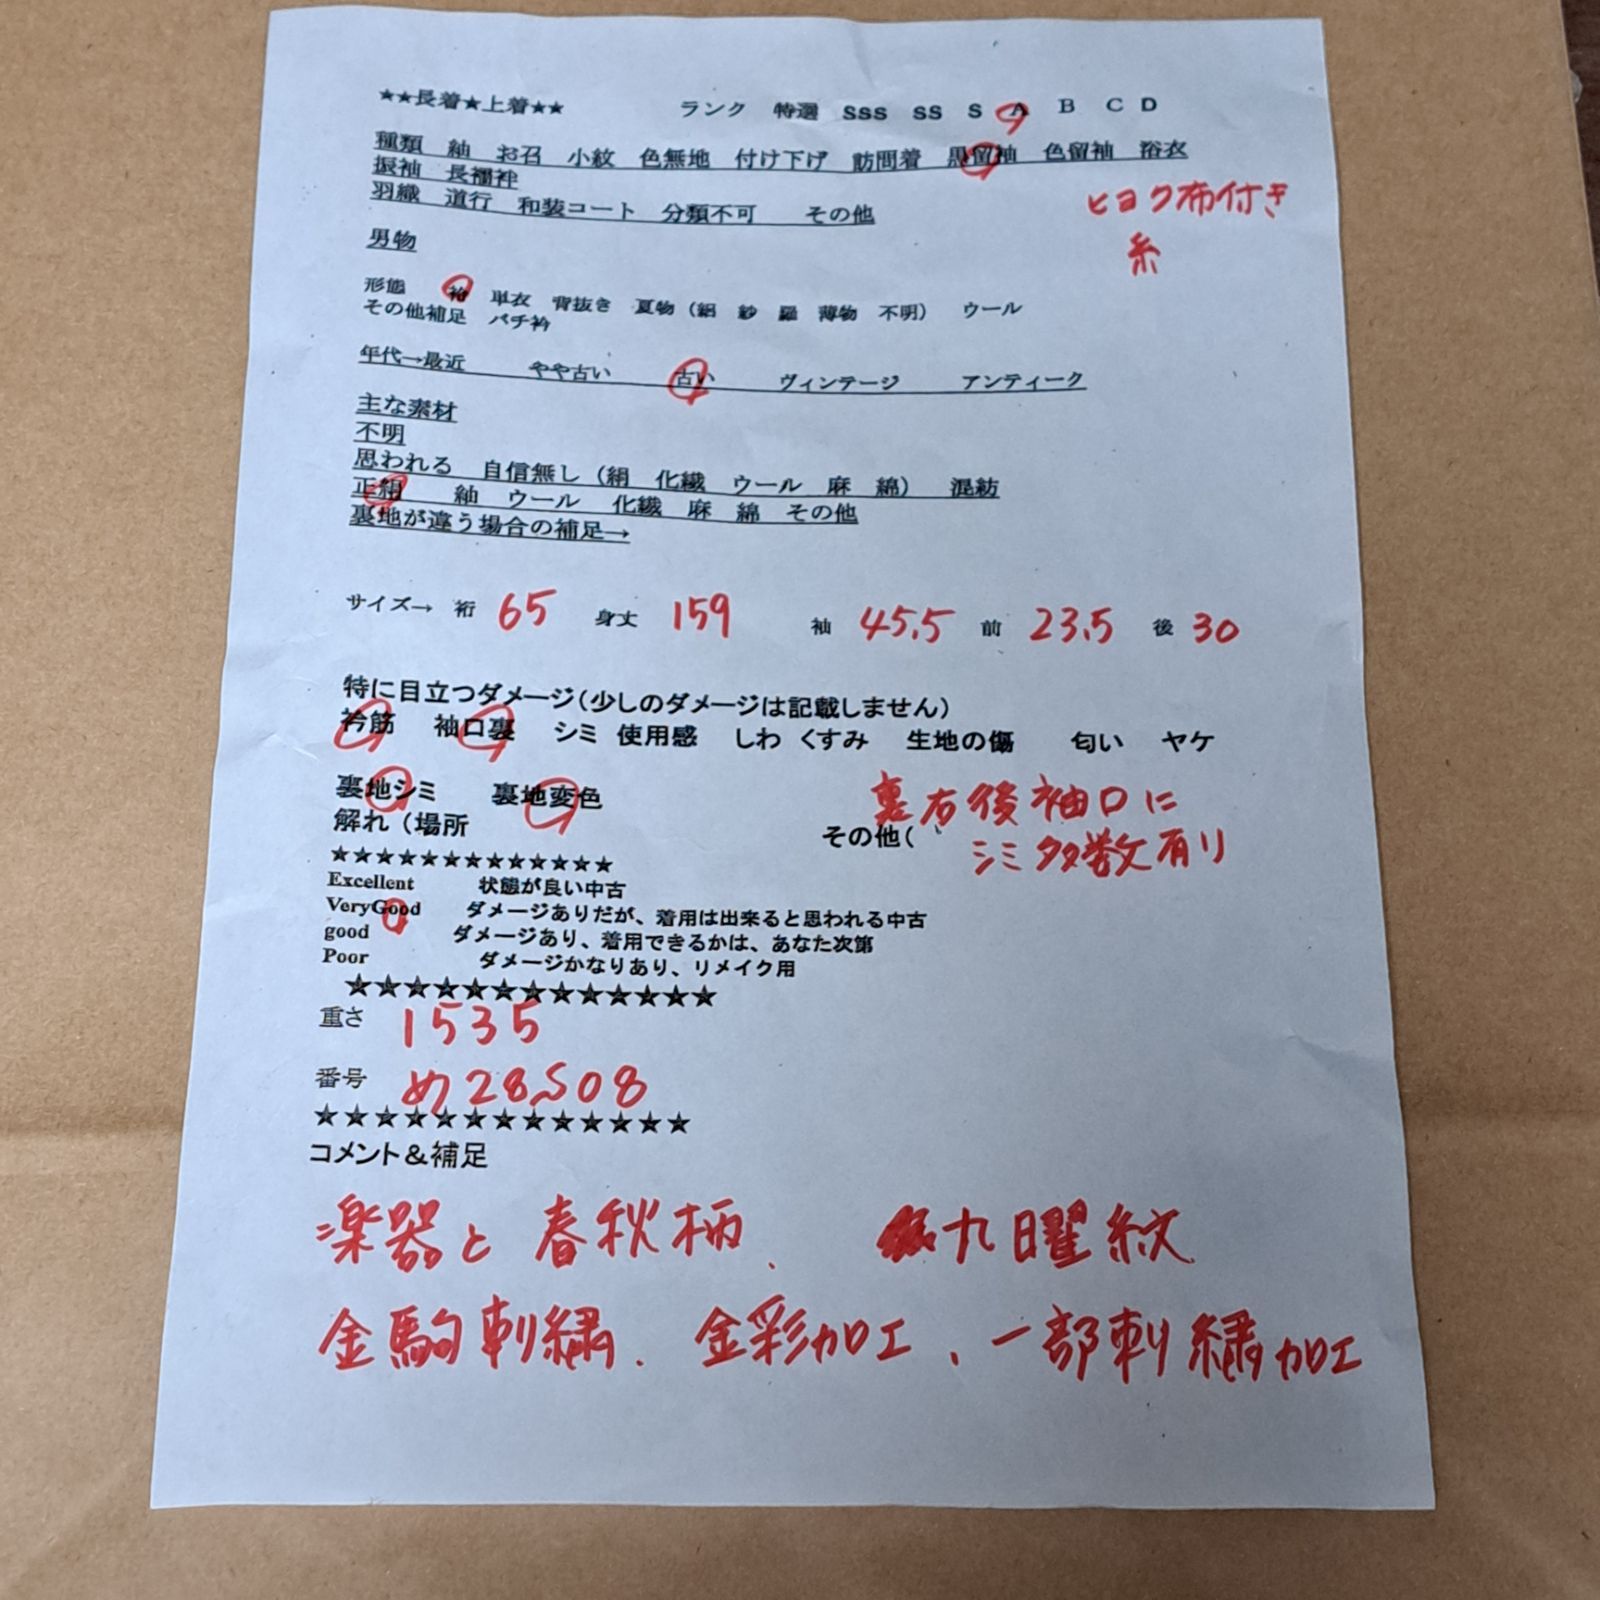 ★★長着★上着★★　ランク　特選　SSS　SS　S　A　B　C　D
種類　紬　お召　小紋　色無地　付け下げ　訪問着　黒留袖　色留袖　浴衣
振袖　長襦袢
羽織　道行　和装コート　分類不可　その他
ヒヨク布付き
糸
男物
形態　袷　単衣　背抜き　夏物（絽　紗　羅　薄物　不明）　ウール
その他補足　バチ衿
年代→最近　やや古い　古い　ヴィンテージ　アンティーク
主な素材
不明
思われる　自信無し（絹　化繊　ウール　麻　綿）　混紡
正絹　紬　ウール　化繊　麻　綿　その他
裏地が違う場合の補足→
サイズ→　裄　65　身丈　159　袖　45.5　前　23.5　後　30
特に目立つダメージ（少しのダメージは記載しません）
衿筋　袖口裏　シミ　使用感　しわ　くすみ　生地の傷　匂い　ヤケ
裏地シミ　裏地変色
解れ（場所　その他（　裏右後袖口に
シミ多数有り
★★★★★★★★★★★★★
Excellent　状態が良い中古
VeryGood　ダメージありだが、着用は出来ると思われる中古
good　ダメージあり、着用できるかは、あなた次第
Poor　ダメージかなりあり、リメイク用
★★★★★★★★★★★★★
重さ　1535
番号　め28S08
★★★★★★★★★★★★★
コメント＆補足
楽器と春秋柄、　九曜紋
金駒刺繍、金彩加工、一部刺繍加工